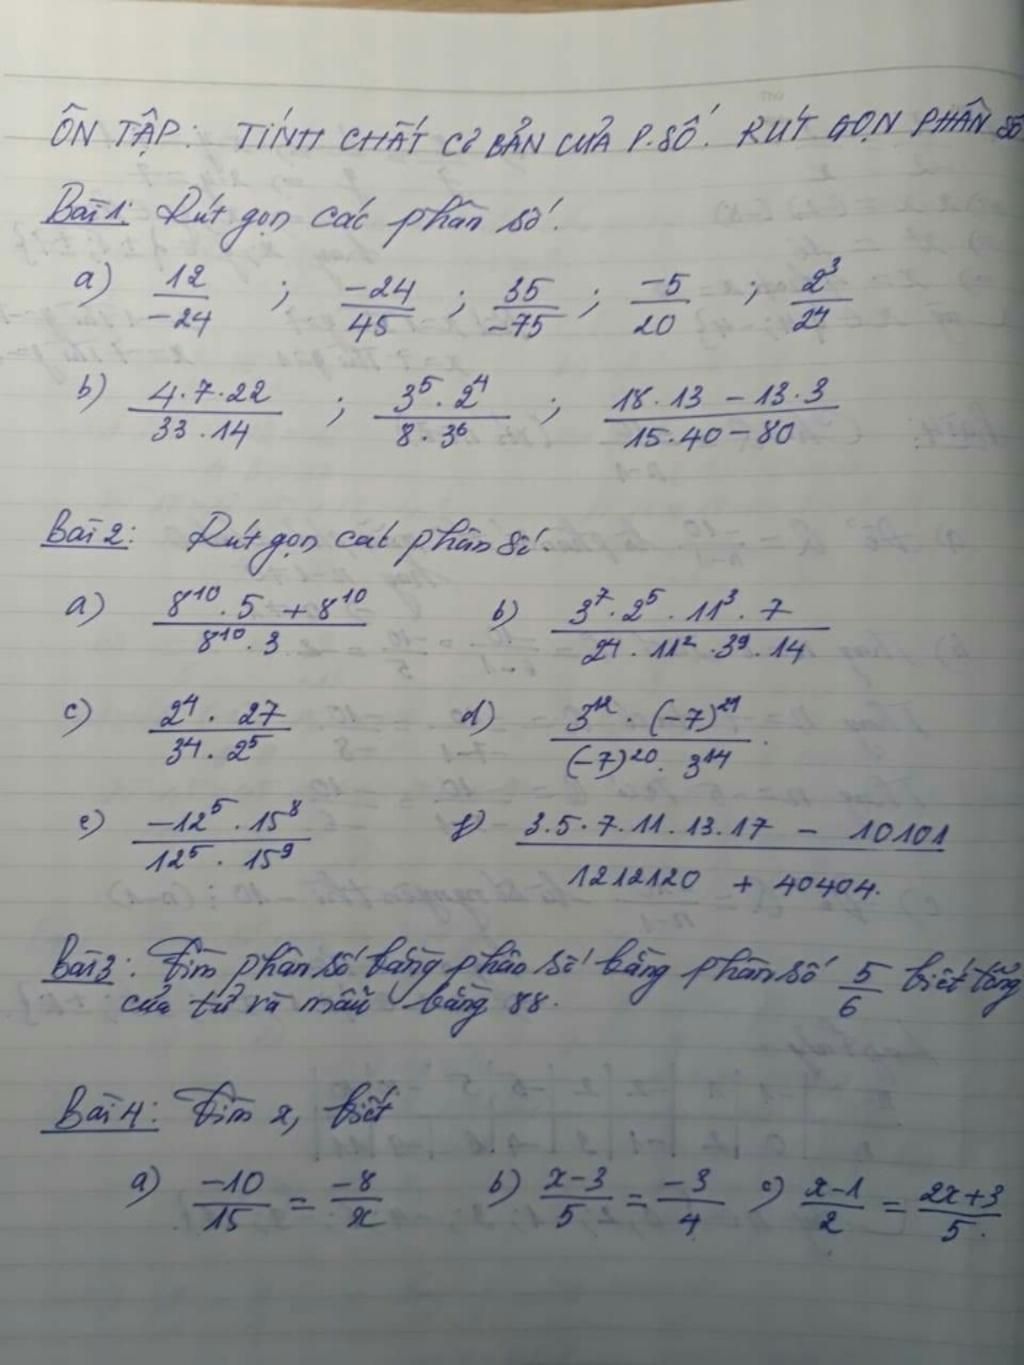 ÔN TẬP: TÍNH CHẤT CƠ BẢN CỦA P.SỐ. RÚT GỌN PHÂN SỐ
Bài 1: Rút gọn các phân số.
a) 12/-24 ; -24/45 ; 35/-75 ; -5/20 ; 2³/24
b) 4.7.22/33.14 ; 3⁵.2⁴/8.3⁶ ; 18.13 - 13.3/15.40 - 80
Bài 2: Rút gọn các phân số.
a) 8¹⁰.5 + 8¹⁰/8¹⁰.3 b) 3⁷.2⁵.11³.7/24.11².3⁹.14
c) 2⁴.27/34.2⁵ d) 3¹².(-7)²¹/(-7)²⁰.3¹⁴
e) -12⁵.15⁸/12⁵.15⁹ f) 3.5.7.11.13.17 - 10101/1212120 + 40404.
Bài 3: Tìm phân số bằng phân số bằng phân số 5/6 biết tổng
của tử và mẫu bằng 88.
Bài 4: Tìm x, biết
a) -10/15 = -8/x b) x-3/5 = -3/4 c) x-1/2 = 2x+3/5.